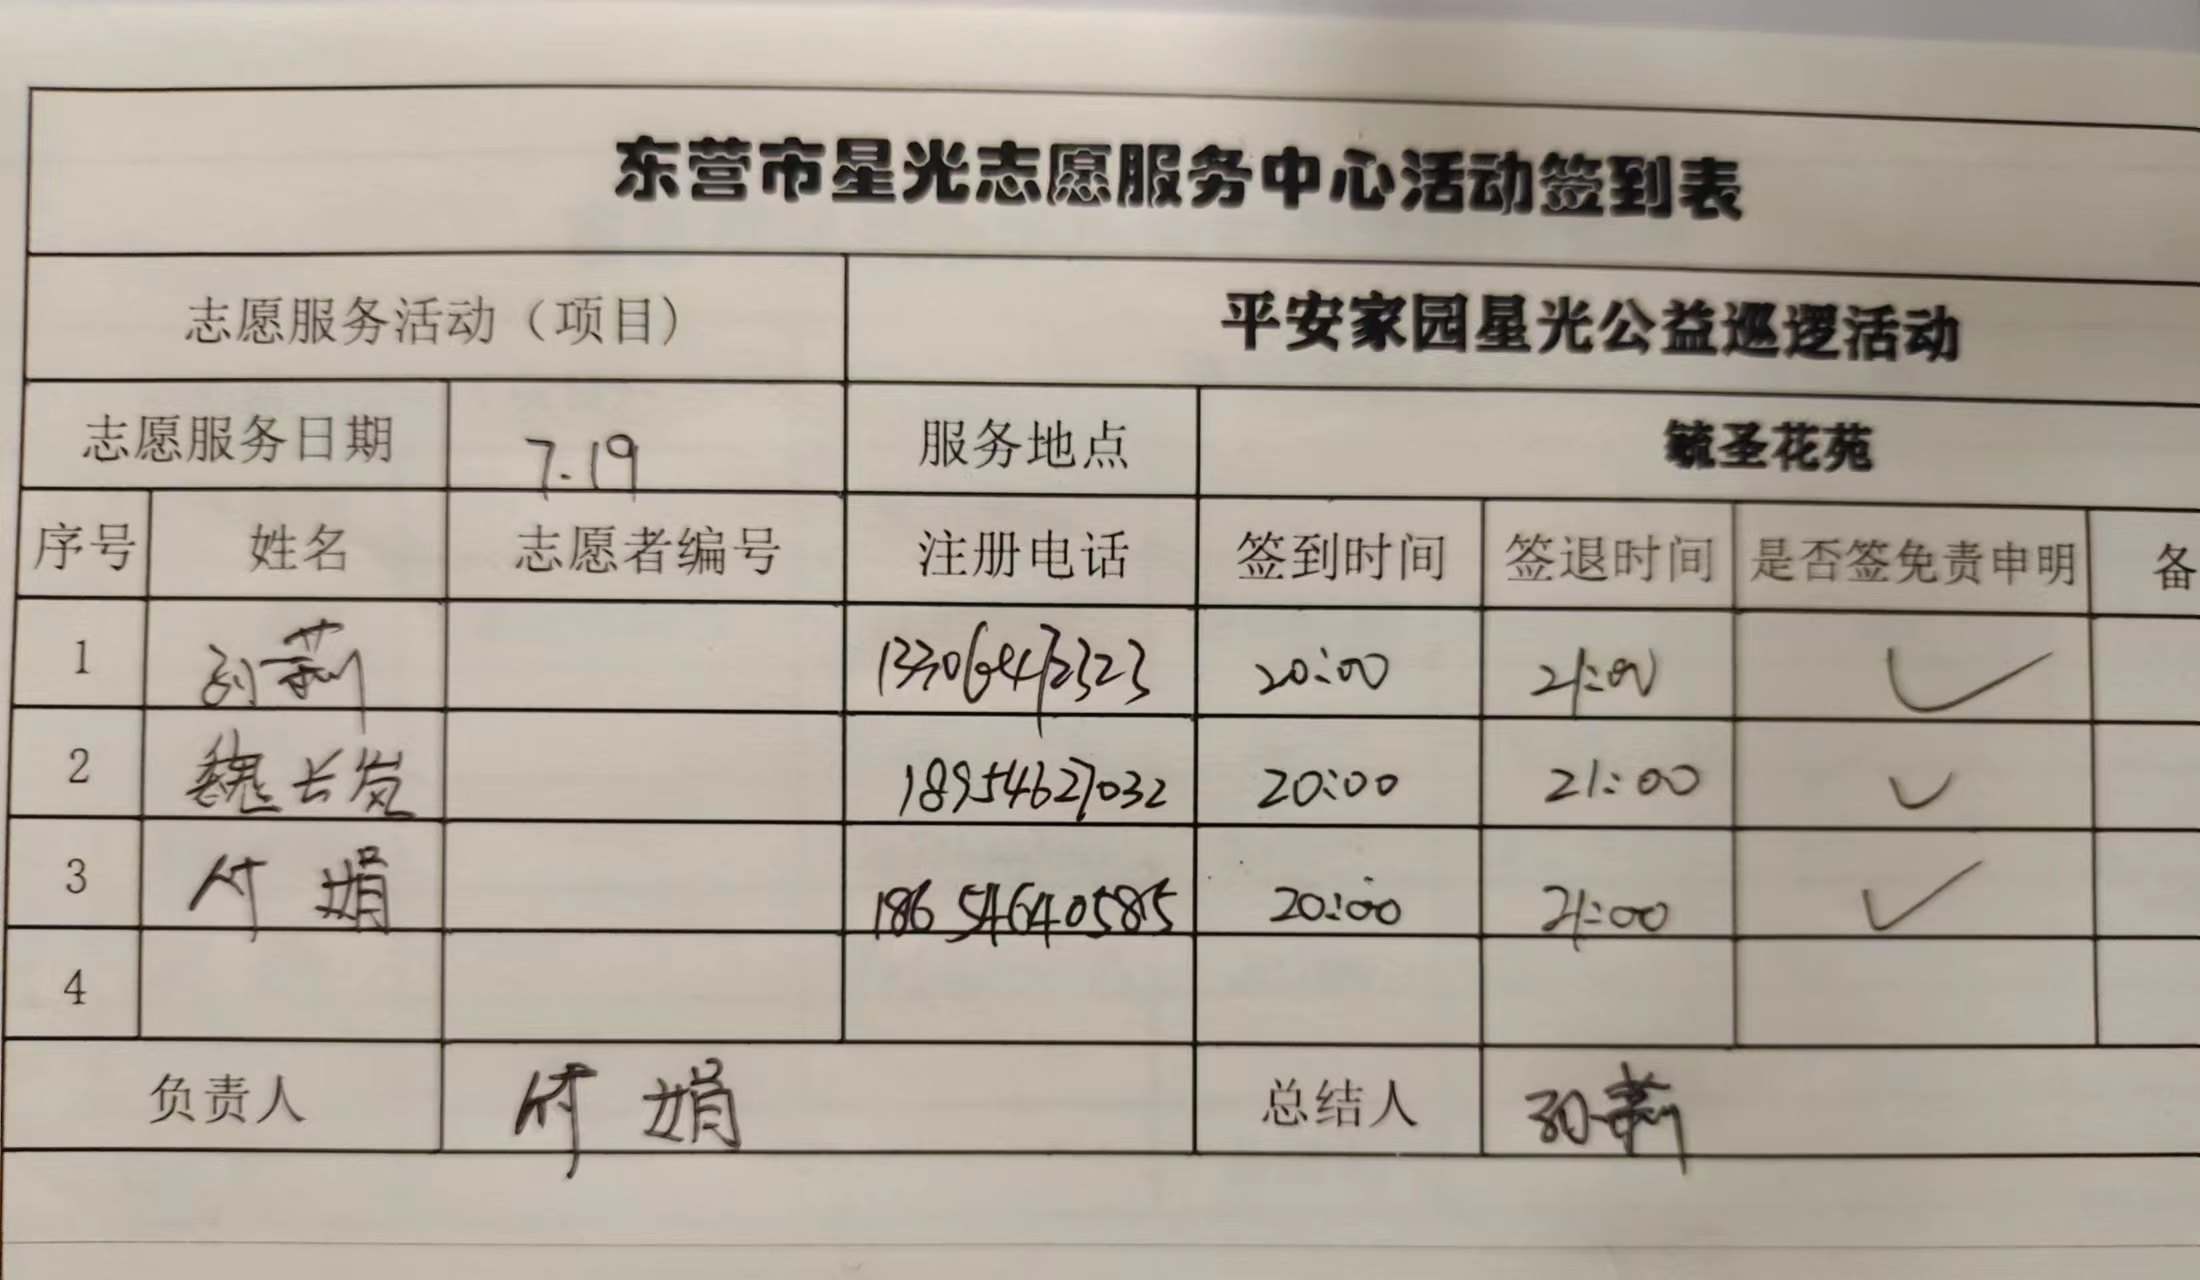 东营市星光志愿服务中心活动签到表
志愿服务活动（项目） 平安家园星光公益巡逻活动
志愿服务日期 7.19 服务地点 毓圣花苑
序号 姓名 志愿者编号 注册电话 签到时间 签退时间 是否签免责申明 备
1 孙莉 13306472323 20:00 21:00 ✓
2 魏长发 18954627032 20:00 21:00 ✓
3 付娟 18654640585 20:00 21:00 ✓
4
负责人 付娟 总结人 孙莉